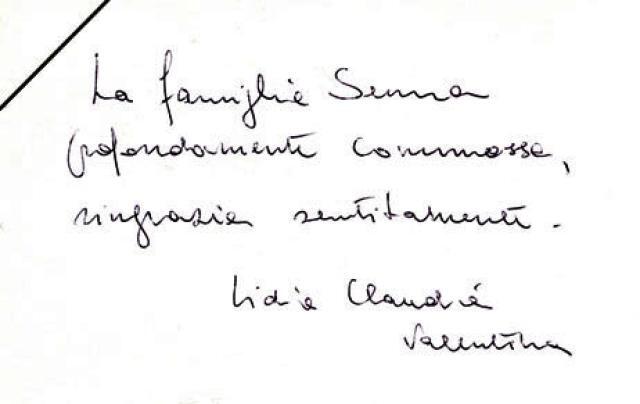 La famiglia Senna
profondamente commossa,
ringrazia sentitamente.
Lidia Claudia
Valentina